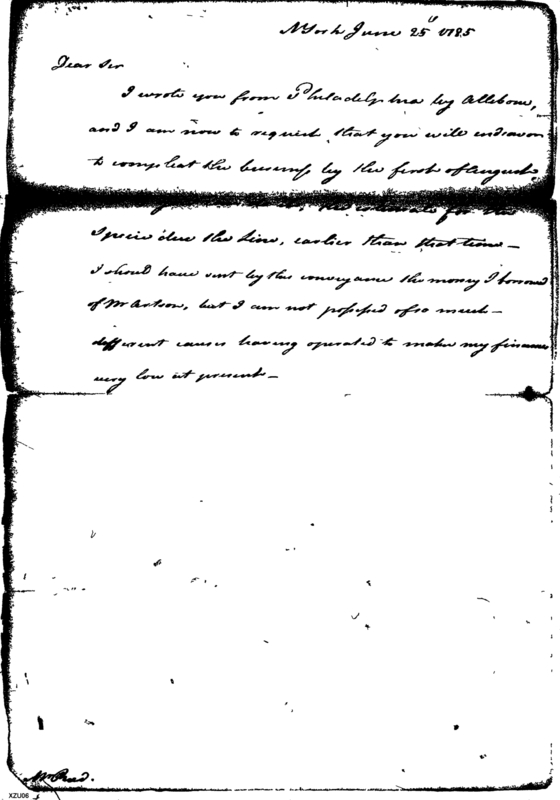 N York June 25th 1785
Dear Sir
I wrote you from Philadelphia by Allibone,
and I am now to request that you will endeavor
to compleat the business by the first of August
the estimate for the
Specie due the Line, earlier than that time —
I should have sent by this conveyance the money I borrowed
of Mr. but I am not possessed of so much —
different causes having operated to make my finances
very low at present —
Mr
XZU06